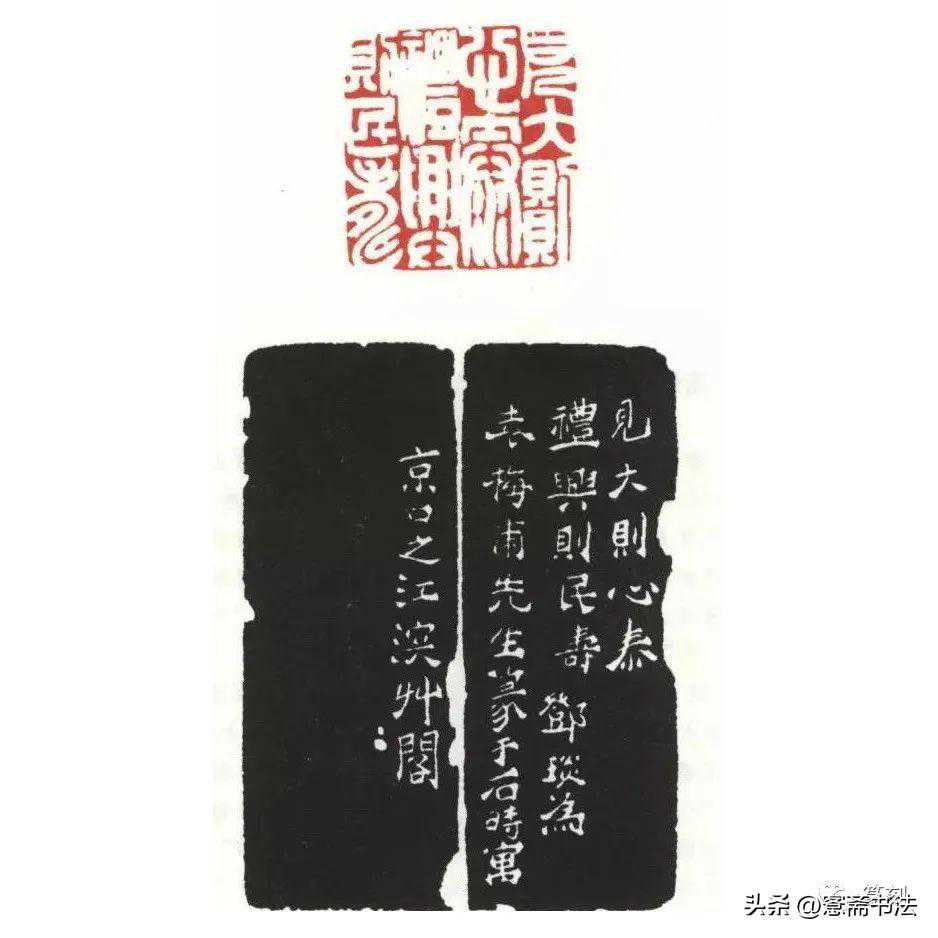 見大則
心泰
禮興
則民壽
見大則心泰
禮興則民壽 鄧琰為
袁梅甫先生篆于石時寓
京口之江濱艸閣
篆刻
头条 @愙斋书法